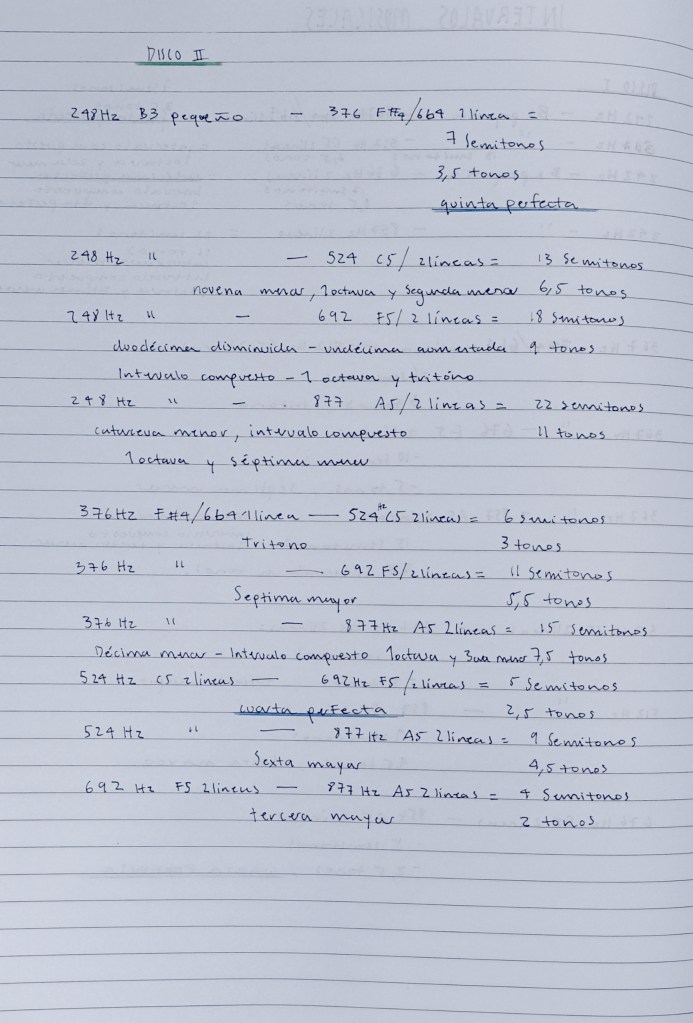 DISCO II
248Hz B3 pequeño — 376 F#4/Gb4 1linea =
7 Semitonos
3,5 tonos
quinta perfecta
248 Hz " — 524 C5/ 2lineas = 13 Semitonos
novena menor, 1octava y Segunda menor 6,5 tonos
248 Hz " — 692 F5/2 líneas = 18 Semitonos
duodécima disminuida - undécima aumentada 9 tonos
Intervalo compuesto - 1 octava y tritóno
248 Hz " — 877 A5/2 lineas = 22 semitonos
catorceva menor, intervalo compuesto 11 tonos
1octava y séptima menor
376Hz F#4/Gb4 1linea — 524Hz C5 2lineas = 6 semitonos
tritono 3 tonos
376 Hz " — 692 F5/2lineas = 11 Semitonos
Septima mayor 5,5 tonos
376 Hz " — 877Hz A5 2lineas = 15 semitonos
Décima menor - Intervalo compuesto 1octava y 3era menor 7,5 tonos
524 Hz C5 2lineas — 692Hz F5/2lineas = 5 Semitonos
cuarta perfecta 2,5 tonos
524 Hz " — 877Hz A5 2lineas = 9 Semitonos
Sexta mayor 4,5 tonos
692 Hz F5 2lineas — 877 Hz A5 2lineas = 4 Semitonos
tercera mayor 2 tonos